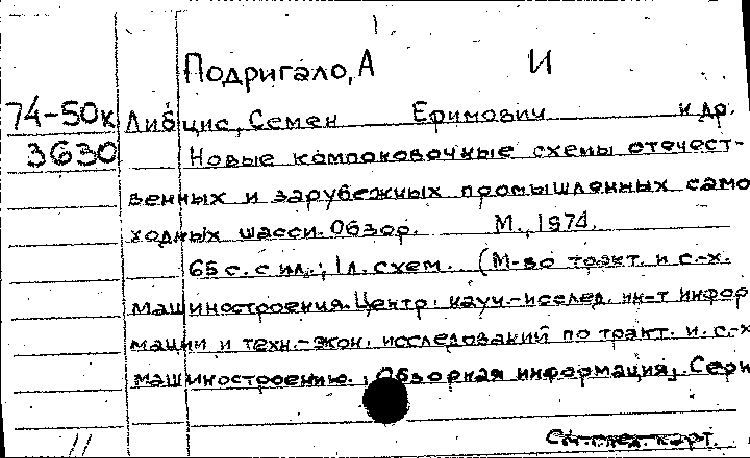 Подригало, А И
74-50к Либцис, Семен Ефимович и др.
3630 Новые компоновочные схемы отечест-
венных и зарубежных промышленных само
ходных шасси. Обзор. М., 1974.
65 с. с ил.; 1 л. схем. (М-во тракт. и с.-х.
машиностроения. Центр. науч.-исслед. ин-т инфор
мации и техн.-экон. исследований по тракт. и с.-х
машиностроению. Обзорная информация. Сери
См. след. карт.